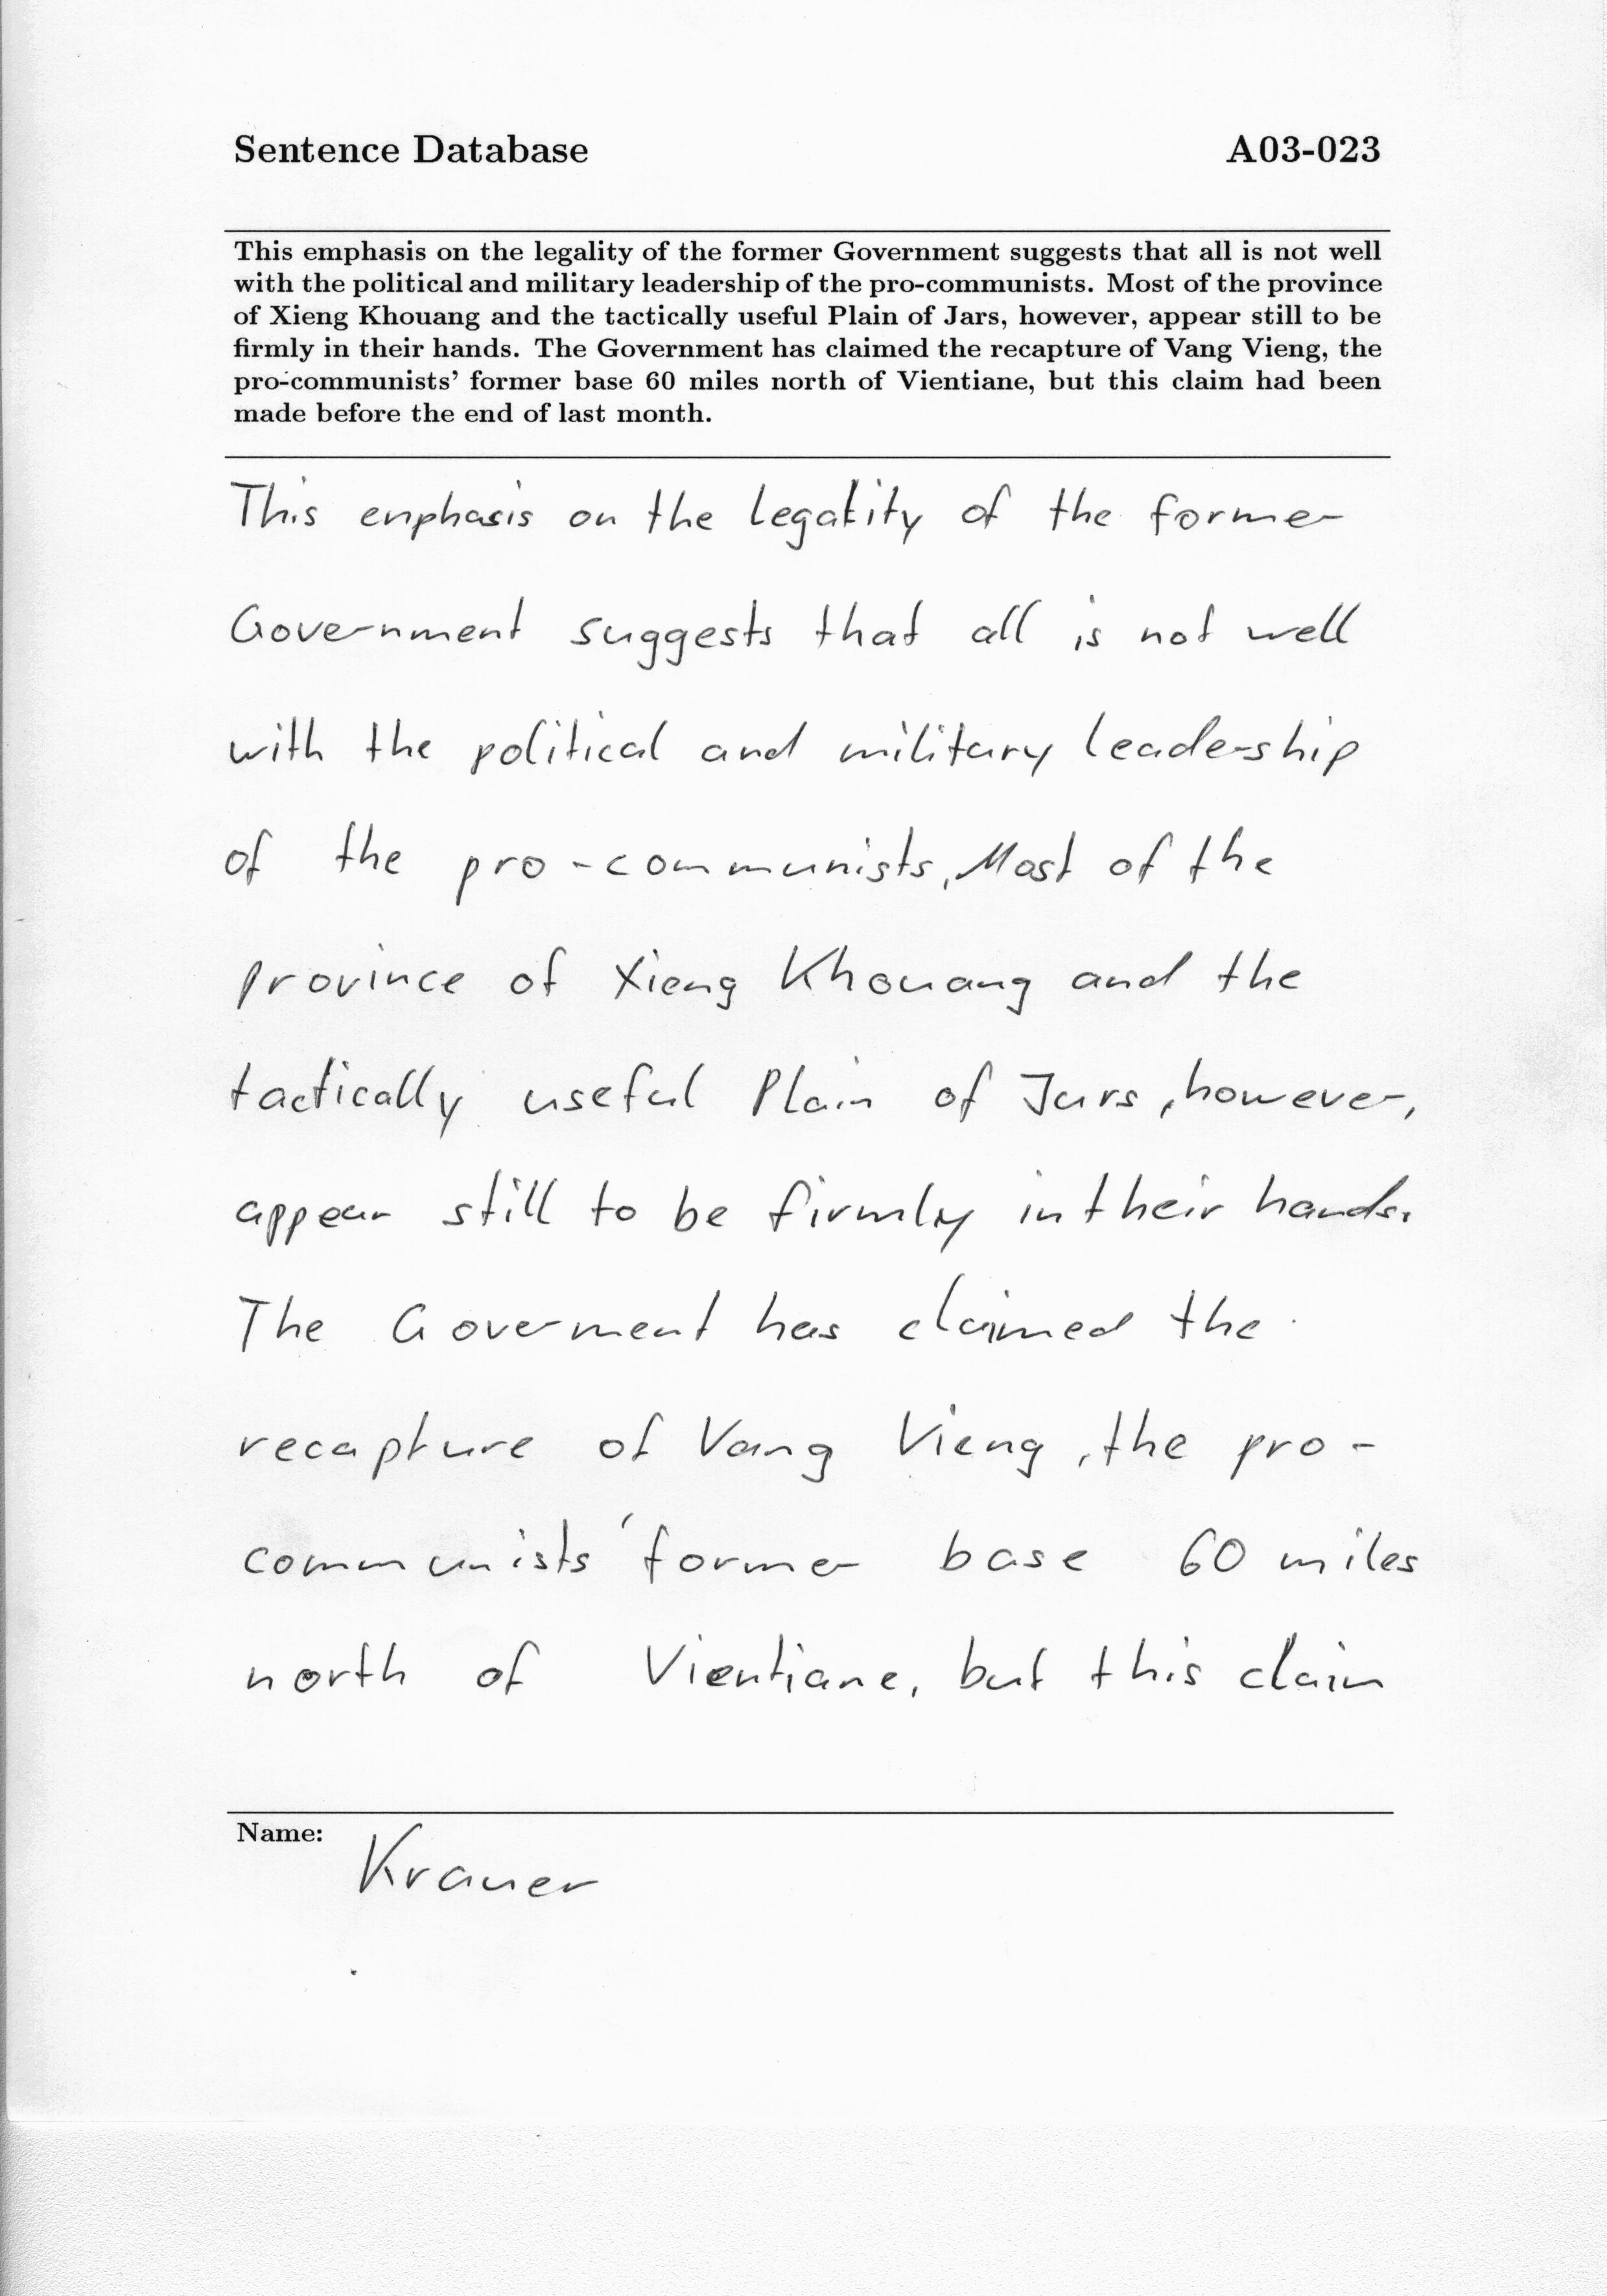 Sentence Database A03-023
This emphasis on the legality of the former Government suggests that all is not well
with the political and military leadership of the pro-communists. Most of the province
of Xieng Khouang and the tactically useful Plain of Jars, however, appear still to be
firmly in their hands. The Government has claimed the recapture of Vang Vieng, the
pro-communists' former base 60 miles north of Vientiane, but this claim had been
made before the end of last month.
This emphasis on the legality of the former
Government suggests that all is not well
with the political and military leadership
of the pro-communists, Most of the
province of Xieng Khouang and the
tactically useful Plain of Jars, however,
appear still to be firmly in their hands.
The Goverment has claimed the
recapture of Vang Vieng, the pro-
communists' former base 60 miles
north of Vientiane, but this claim
Name: Krauer